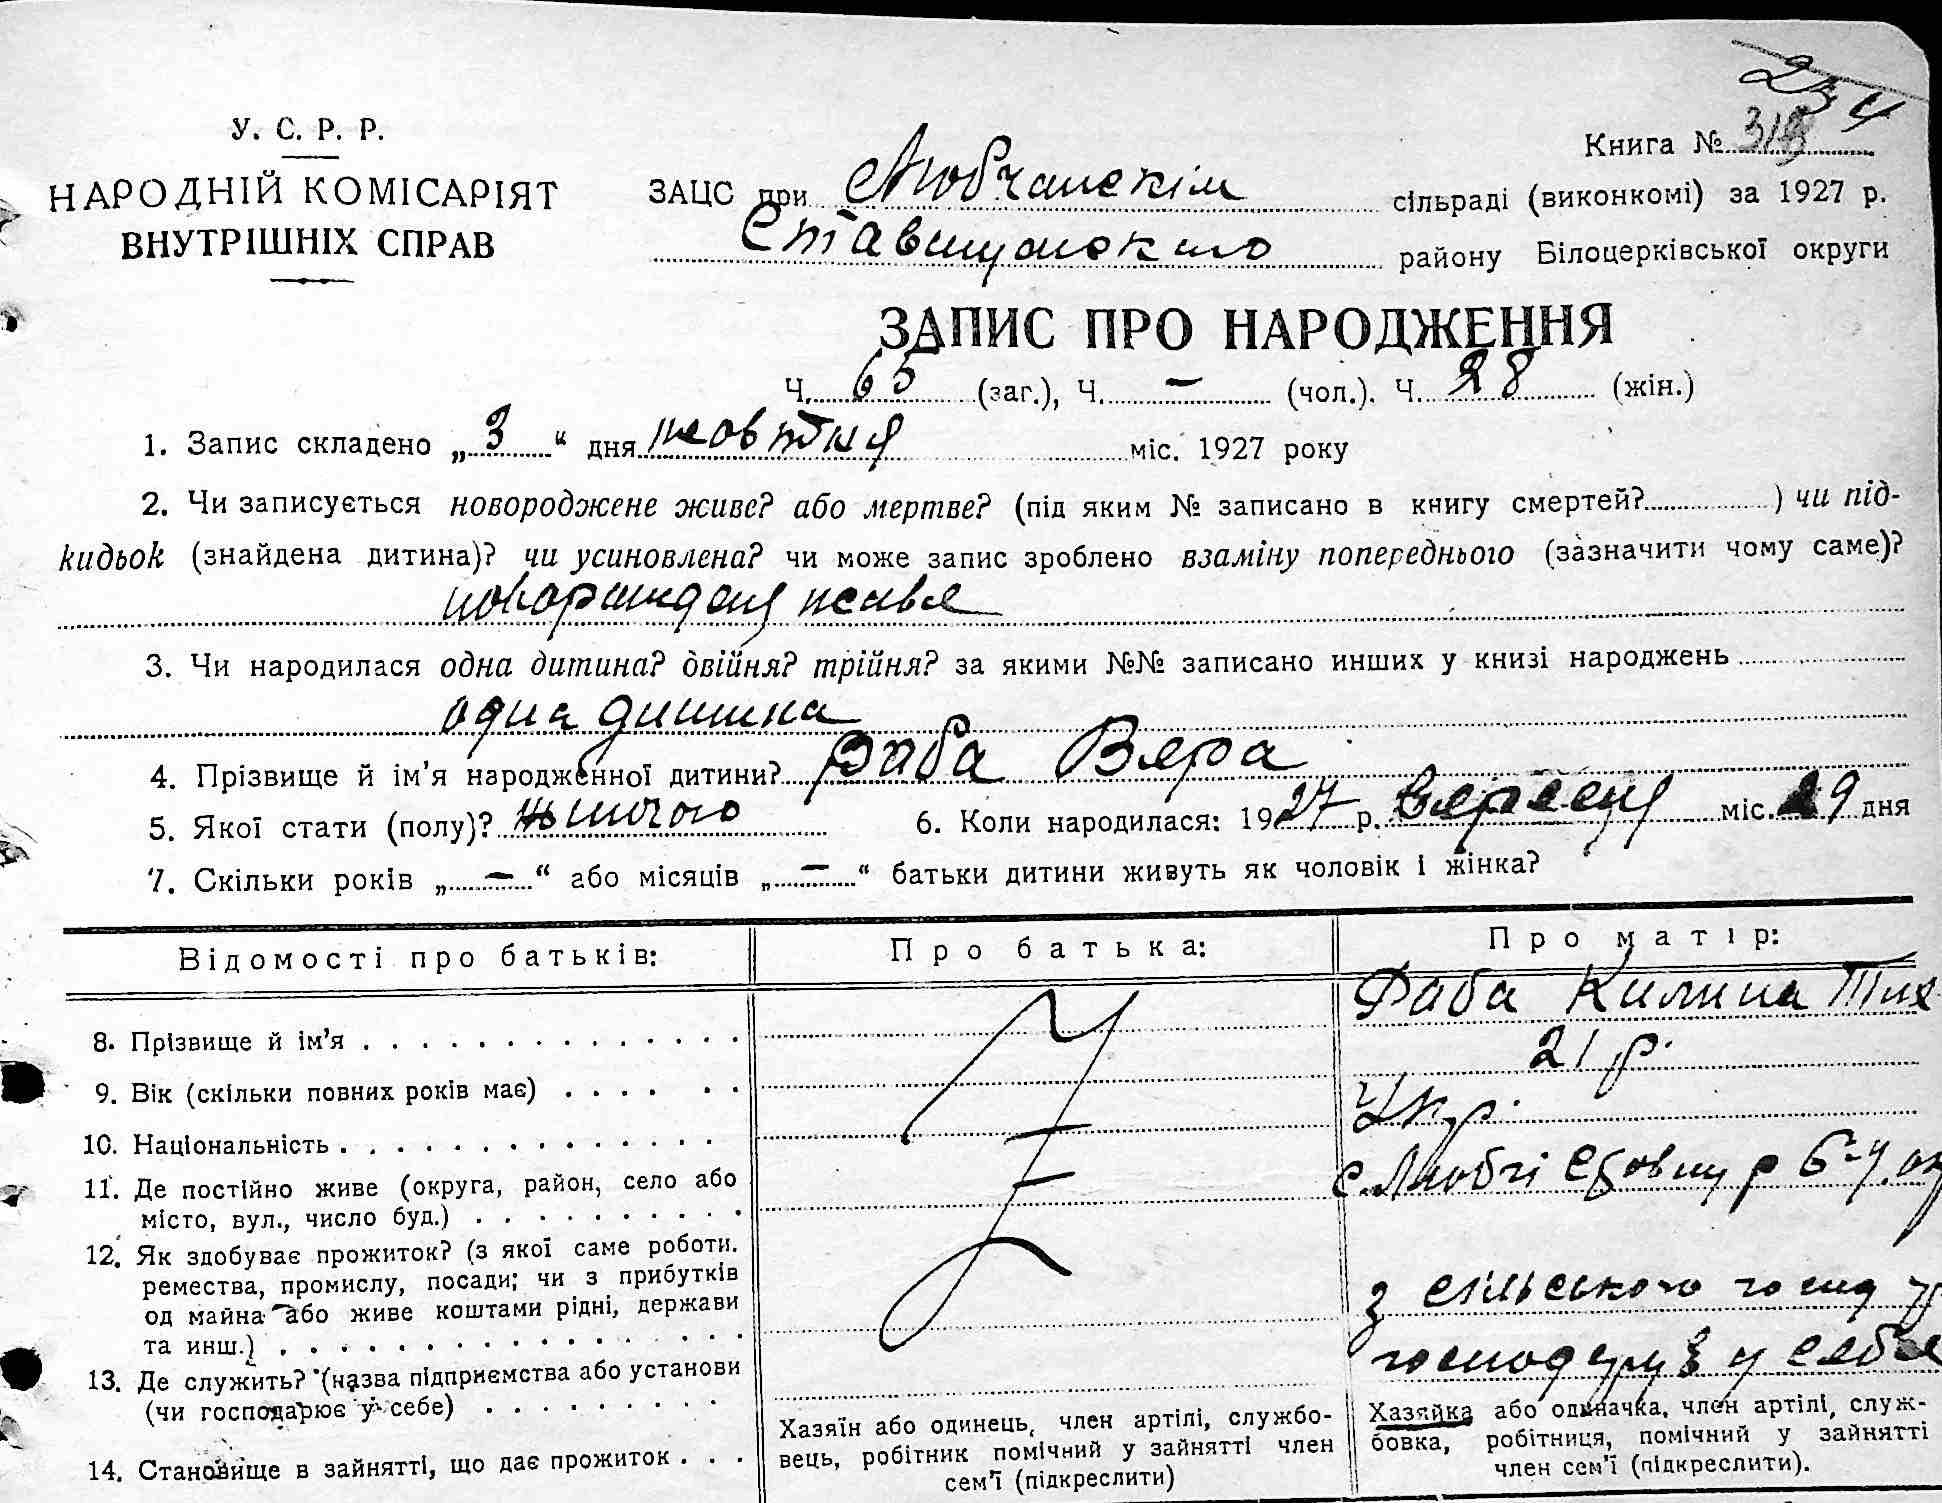 234
У. С. Р. Р.
НАРОДНІЙ КОМІСАРІЯТ
ВНУТРІШНІХ СПРАВ
Книга № 318
ЗАЦС при Любчанскім сільраді (виконкомі) за 1927 р.
Ставищанского району Білоцерківської округи
ЗАПИС ПРО НАРОДЖЕННЯ
Ч. 65 (заг.), Ч. — (чол.). Ч. 28 (жін.)
1. Запис складено „3“ дня жовтня міс. 1927 року
2. Чи записується новороджене живе? або мертве? (під яким № записано в книгу смертей? ) чи під-
кидьок (знайдена дитина)? чи усиновлена? чи може запис зроблено взаміну попереднього (зазначити чому саме)?
живе
3. Чи народилася одна дитина? двійня? трійня? за якими №№ записано инших у книзі народжень
одна дитина
4. Прізвище й ім'я народженної дитини? Раба Вера
5. Якої стати (полу)? жіночого 6. Коли народилася: 1927 р. вересня міс. 29 дня
7. Скільки років „—“ або місяців „—“ батьки дитини живуть як чоловік і жінка?
Відомості про батьків: Про батька: Про матір:
8. Прізвище й ім'я Раба Килина Тих
9. Вік (скільки повних років має) 21 р.
10. Національність Укр.
11. Де постійно живе (округа, район, село або
місто, вул., число буд.)
с. Любчі р Б-Ц. ок
12. Як здобуває прожиток? (з якої саме роботи.
ремества, промислу, посади; чи з прибутків
од майна або живе коштами рідні, держави
та инш.)
з сільського госпд
13. Де служить? (назва підприємства або установи
(чи господарює у себе)
у себе
14. Становище в зайнятті, що дає прожиток
Хазяїн або одинець, член артілі, службо-
вець, робітник помічний у зайнятті член
сем'ї (підкреслити)
Хазяйка або одиначка, член артілі, служ-
бовка, робітниця, помічний у зайнятті
член сем'ї (підкреслити).